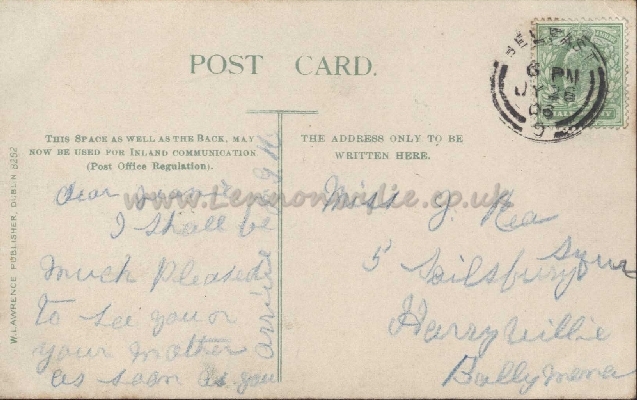 POST CARD.
THIS SPACE AS WELL AS THE BACK, MAY
NOW BE USED FOR INLAND COMMUNICATION
(Post Office Regulation).
THE ADDRESS ONLY TO BE
WRITTEN HERE.
W. LAWRENCE PUBLISHER, DUBLIN 8252
BELFAST
6 PM
JY 28
06
9
www.Lennonwylie.co.uk
dear
I shall be
much pleased
to see you or
your mother
as soon as you
arrive
Miss J. Rea
5 Sailsbury Squr
Harryville
Ballymena